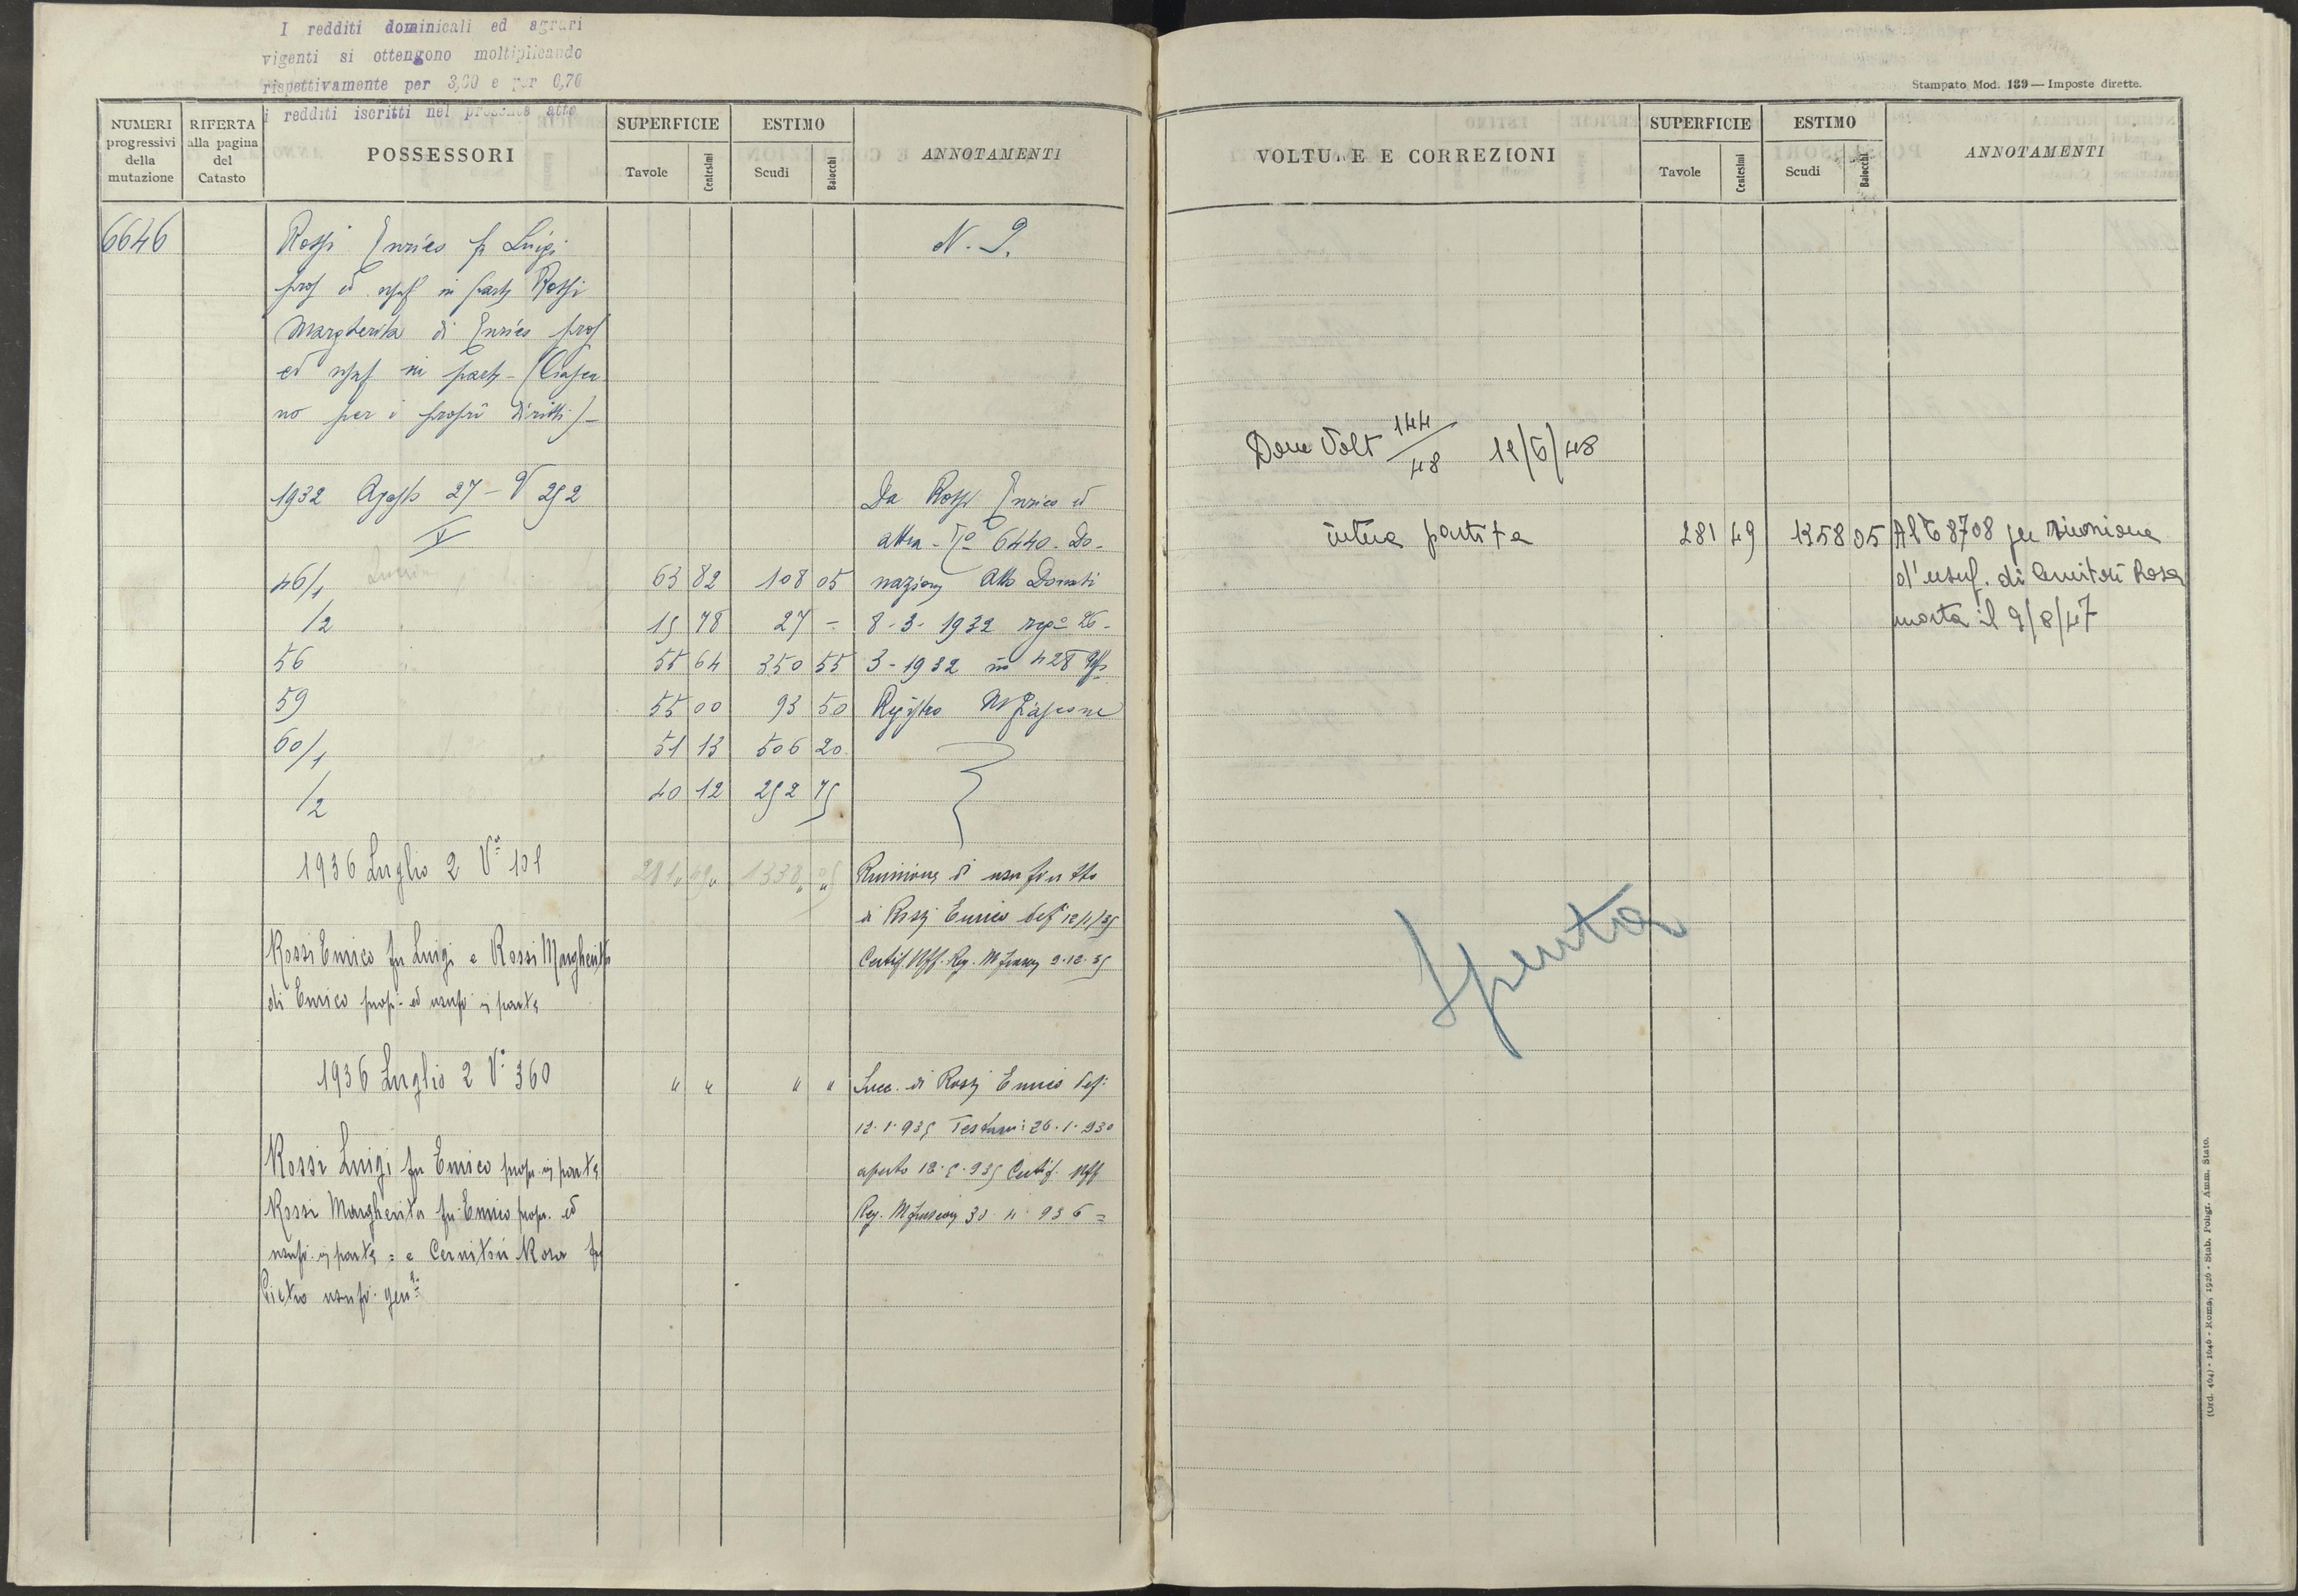 I redditi dominicali ed agrari
vigenti si ottengono moltiplicando
rispettivamente per 3,00 e per 0,70
i redditi iscritti nel presente atto
NUMERI progressivi della mutazione
RIFERTA alla pagina del Catasto
POSSESSORI
SUPERFICIE
Tavole Centesimi
ESTIMO
Scudi Baiocchi
ANNOTAMENTI
6646
Rossi Enrico fu Luigi
prop ed usuf in parte Rossi
Margherita di Enrico prop
ed usuf in parte - (Ciascu
no per i propri diritti) -
N. 2.
1932 Agosto 27 - V 252
V
Da Rossi Enrico ed
altra - 6440. Do-
46/1 63 82 108 05 nazione Atto Donati
/2 15 78 27 - 8-3-1932 26-
56 55 64 350 55 3-1932 n 428 Uff
59 55 00 93 50 Registro M Fiascone
60/1 51 13 506 20
/2 40 12 252 75
1936 Luglio 2 V° 101 Riunione di usufrutto
di Rossi Enrico def 12/1/35
Rossi Enrico fu Luigi e Rossi Margherita Certif. Uff. Reg. 9.12.35
di Enrico prop. ed usufr in parte
1936 Luglio 2 V° 360 " " " " Succ. di Rossi Enrico def:
12.1.935 26.1.930
Rossi Luigi fu Enrico prop. in parte aperto Certif. Uff
Rossi Margherita fu Enrico propr. ed Reg. 936 =
usufr. in parte = e Cernitori Rosa fu
Pietro usufr. gen:
Stampato Mod. 139 — Imposte dirette.
VOLTURE E CORREZIONI
SUPERFICIE
Tavole Centesimi
ESTIMO
Scudi Baiocchi
ANNOTAMENTI
Volt 144/48 12/6/48
intera partita 281 49 1358 05 Al 8708 per riunione
d'usuf. di Cernitori Rosa
morta il 9/8/47
Spenta
(Ord. 404) - 1046 - Roma, 1926 - Stab. Poligr. Amm. Stato.